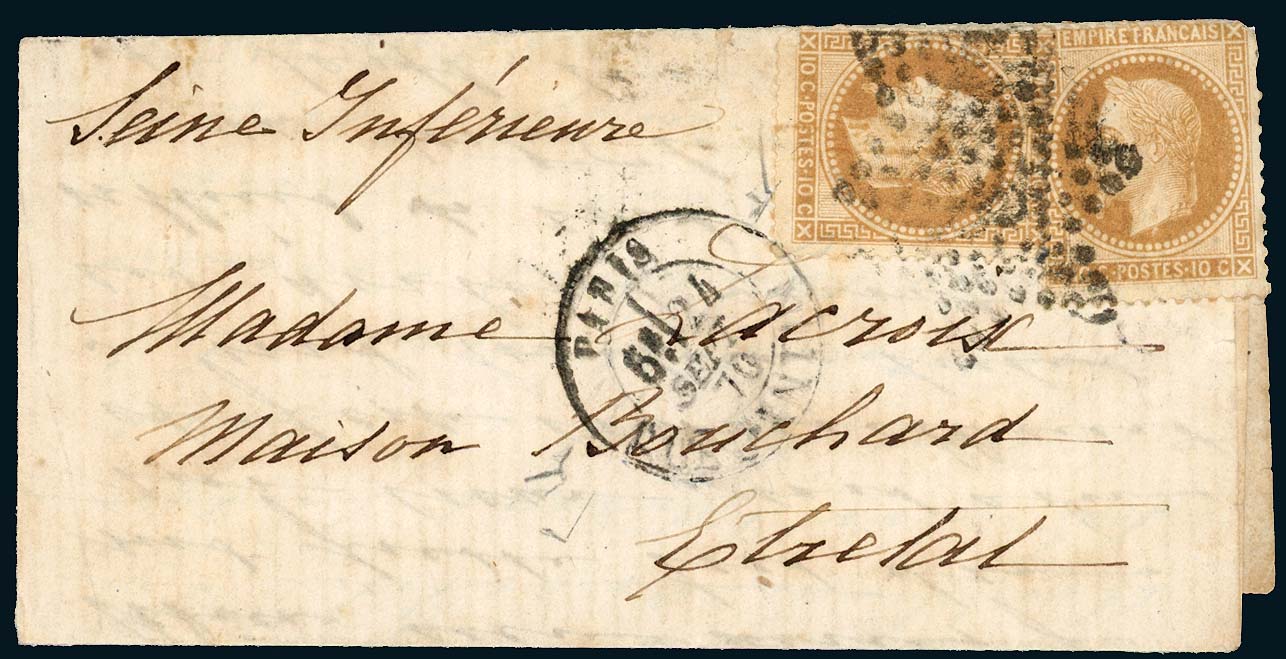 Seine Inférieure
10 C·POSTES·10 C
EMPIRE FRANÇAIS
POSTES·10 C
PARIS
5E/
24
SEPT
70
Madame Lacroix
Maison Bouchard
Etretat